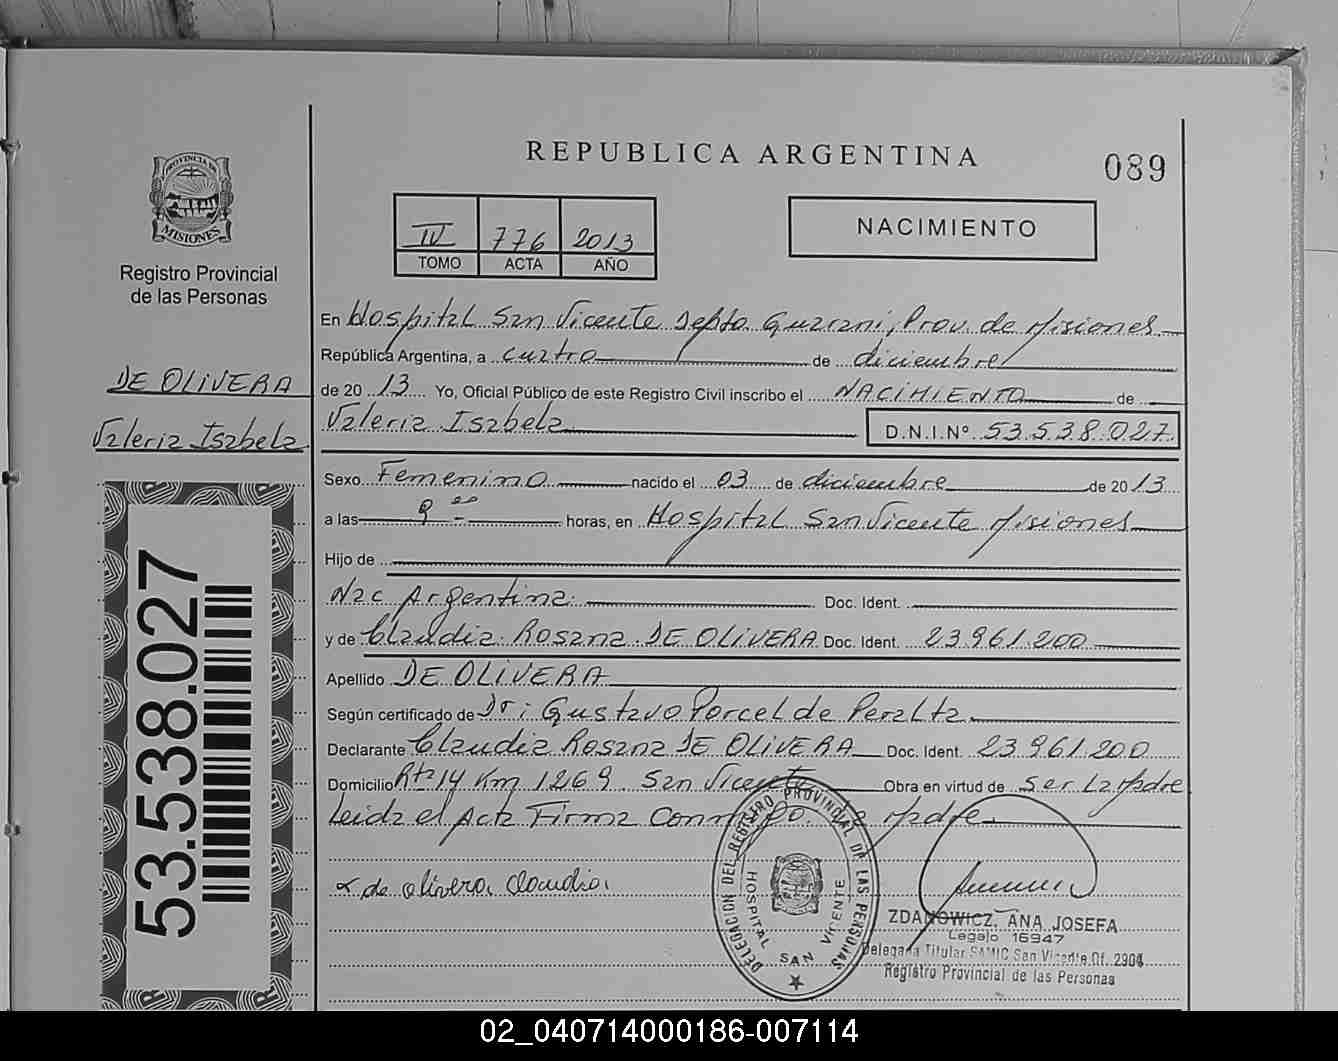 REPUBLICA ARGENTINA
089
PROVINCIA DE
MISIONES
Registro Provincial
de las Personas
IV 776 2013
TOMO ACTA AÑO
NACIMIENTO
En Hospital San Vicente Depto. Guarani, Prov. de Misiones
República Argentina, a cuatro de diciembre
de 20 13 Yo, Oficial Público de este Registro Civil inscribo el NACIMIENTO de
Valeria Isabela D.N.I.Nº 53.538.027
DE OLIVERA
Valeria Isabela
Sexo Femenino nacido el 03 de diciembre de 20 13
a las 9 00 horas, en Hospital San Vicente Misiones
Hijo de
Nac Argentina Doc. Ident.
y de Claudia Rosana DE OLIVERA Doc. Ident. 23.961.200
Apellido DE OLIVERA
Según certificado de Dr: Gustavo Porcel de Peralta
Declarante Claudia Rosana DE OLIVERA Doc. Ident. 23.961.200
Domicilio Rta 14 Km 1269 San Vicente Obra en virtud de ser La Madre
Leida el Acta Firma Conmigo La Madre
53.538.027
de olivera Claudia
DELEGACION DEL REGISTRO PROVINCIAL DE LAS PERSONAS
HOSPITAL SAN VICENTE
ZDANOWICZ, ANA JOSEFA
Legajo 16947
Delegada Titular SAMIC San Vicente Of. 2904
Registro Provincial de las Personas
02_040714000186-007114